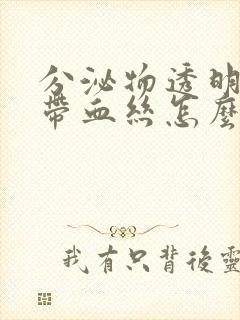 分泌物透明
帶血絲怎麼
我有只背後靈